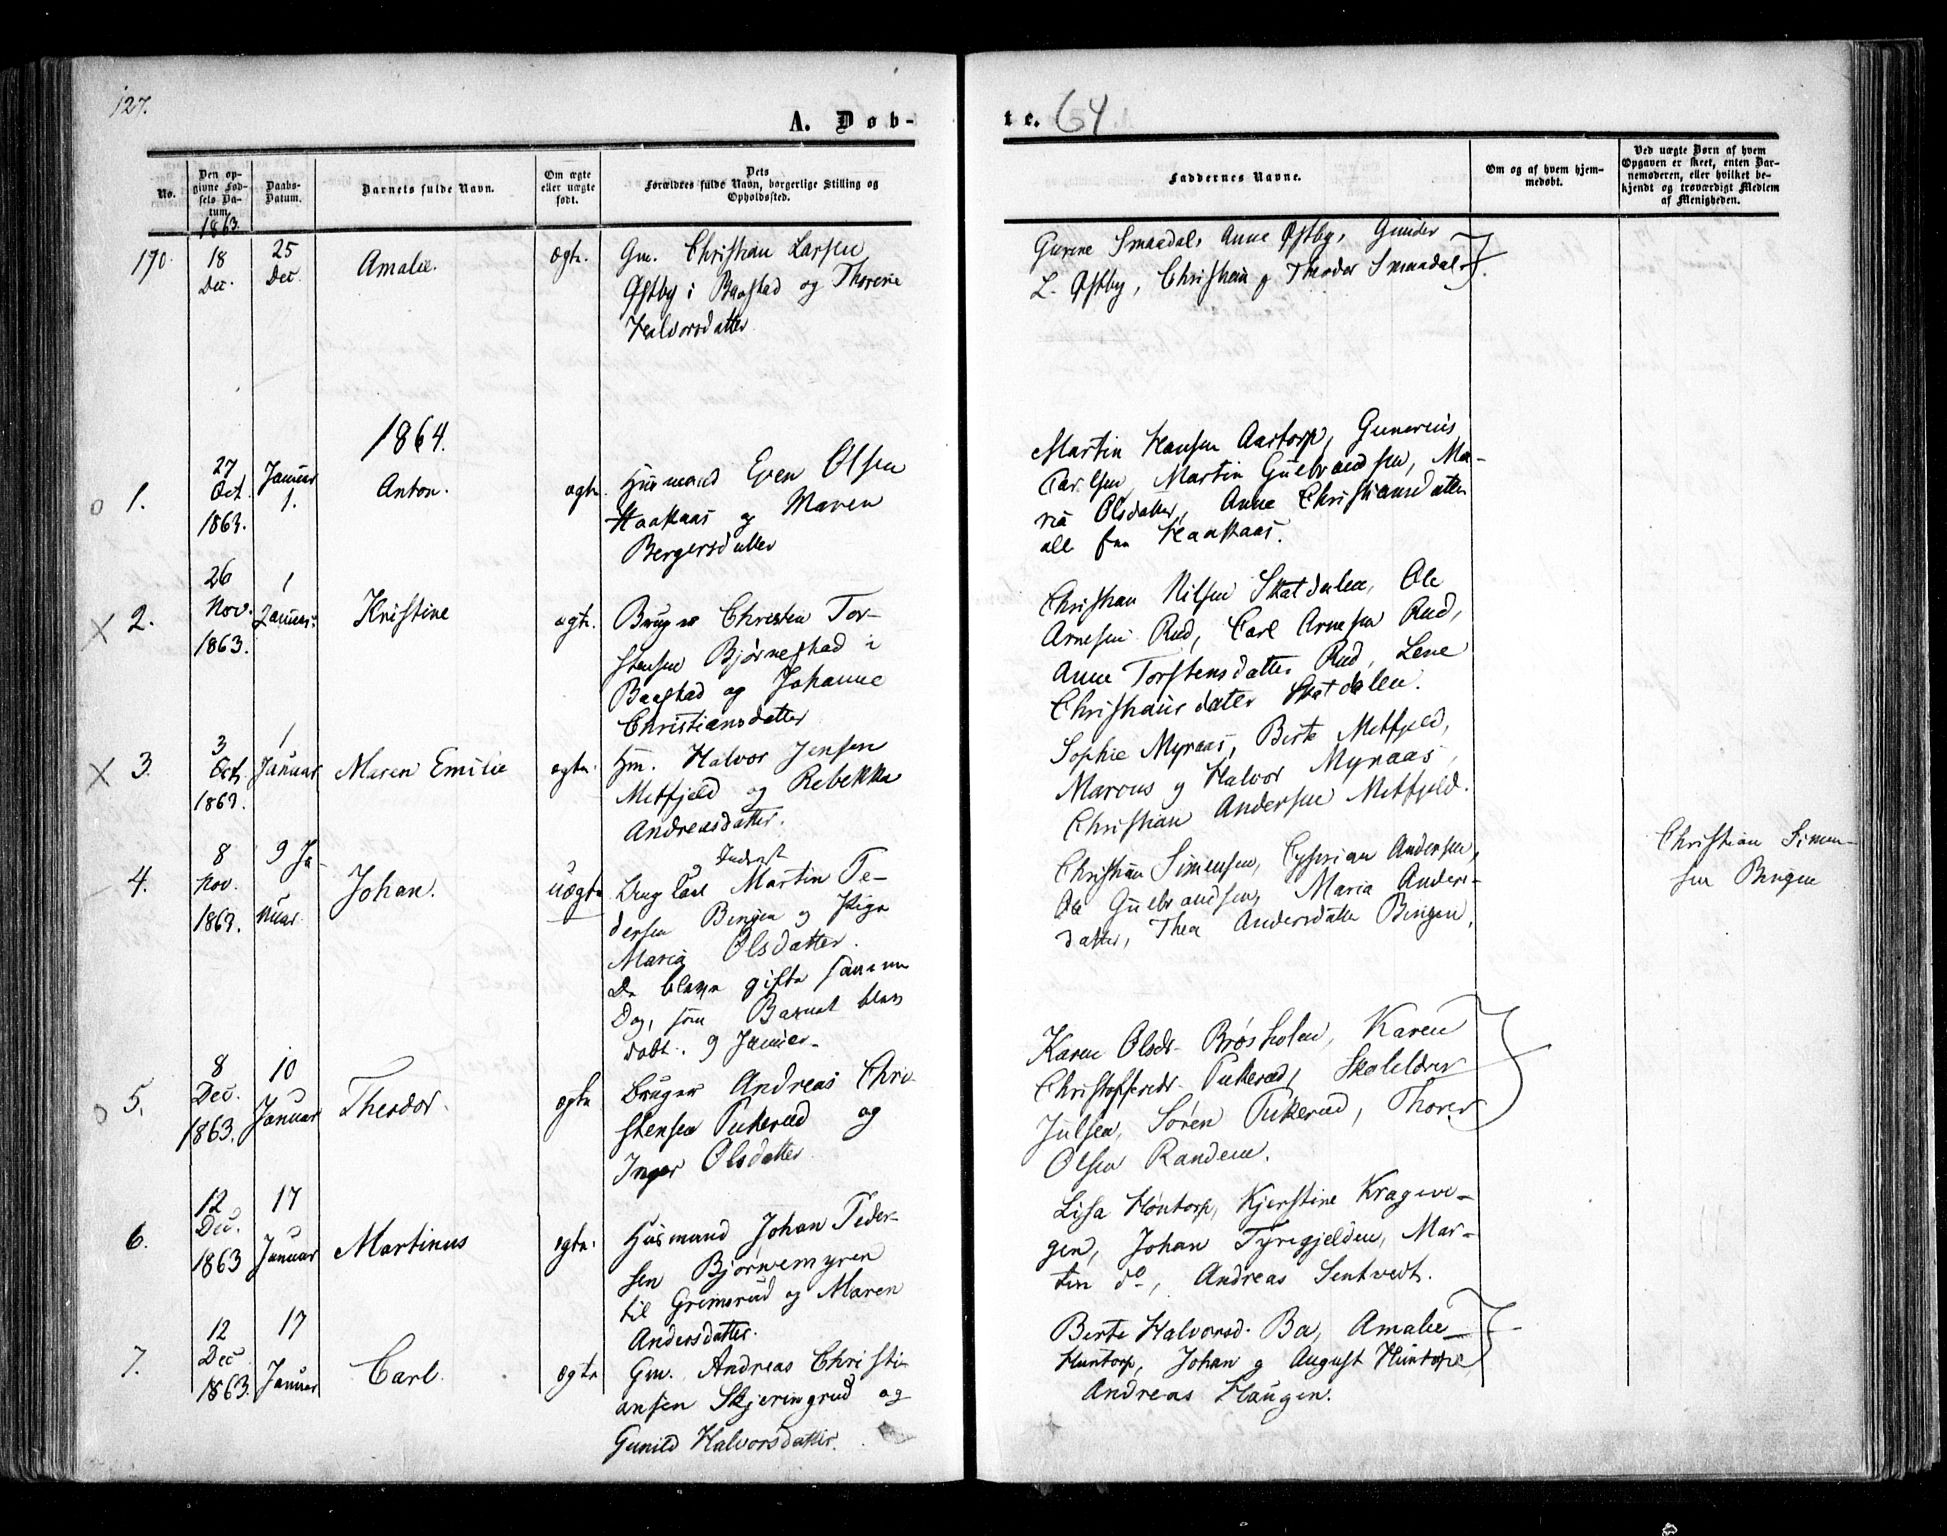 127.
A. Døb-
te. 64
No.
Den op-
givne Fød-
sels Da-
tum.
Daabs-
Datum.
Barnets fulde Navn.
Om ægte
eller uægte
født.
Dets
Forældres fulde Navn, borgerlige Stilling og
Opholdssted.
Faddernes Navne.
Om og af hvem hjem-
medøbt.
Ved uægte Børn af hvem
Opgaven er skeet, enten Bar-
nemoderen, eller hvilket be-
kjendt og troværdigt Medlem
af Menigheden.
1863
190.
18
Dec.
25
Dec.
Amalie.
ægte.
Gm. Christian Larsen
Østby i Baastad og Thorene
Halvorsdatter
Gurine Smaadal, Anne Østby, Gunder
L. Østby, Christian og Theodor Smaadal.
1864.
o 1.
27
Oct.
1863.
Januar
1.
Anton.
ægte.
Husmand Even Olsen
Haakaas og Maren
Bergersdatter
Martin Hansen Aastorp, Gunerius
Carlsen, Martin Gulbrandsen, Ma-
ria Olsdatter, Anne Christiansdatter
alle fra Haakaas.
X 2.
26
Nov.
1863.
1
Januar.
Kristine
ægte.
Bruger Christen Tor-
stensen Bjørnestad i
Baastad og Johanne
Christiansdatter
Christian Nilsen Skatdalen, Ole
Arnesen Rud, Carl Arnesen Rud,
Anne Torstensdatter Rud, Lene
Christiansdatter Skatdalen.
X 3.
3
Oct.
1863.
1
Januar
Maren Emilie
ægte.
Hm. Halvor Jensen
Metfjeld og Rebekka
Andreasdatter.
Sophie Myraas, Berte Metfjeld,
Marcus og Halvor Myraas,
Christian Andersen Metfjeld.
4.
8
Nov.
1863.
9 Ja-
nuar
Johan.
uægte
Inderst
Ungkarl Martin Pe-
dersen Bergen og Pige
Maria Olsdatter.
De bleve gifte samme
Dag, som Barnet blev
døbt. 9 Januar.
Christian Simensen, Cyprian Andersen,
Ole Gulbrandsen, Maria Anders-
datter, Thea Andersdatter Bergen,
Christian Simen-
sen Bergen
o 5.
8
Dec.
1863.
10
Januar
Theodor.
ægte
Bruger Andreas Chri-
stensen Tukerud og
Inger Olsdatter
Karen Olsdr. Brøsholen, Karen
Christoffersdr. Tukerud, Skolelærer
Julsen, Søren Tukerud, Thorer
Olsen Randem.
6.
12
Dec.
1863
17
Januar
Martinus
ægte.
Husmand Johan Peder-
sen Bjørnemyren
til Grimsrud og Maren
Andersdatter.
Lisa Huntorp, Kjerstine Krageve-
gen, Johan Tyregjelden, Mar-
tin do, Andreas Sentvedt.
7.
12
Dec
1863.
17
Januar
Carl
ægte
Gm. Andreas Christi-
ansen Skjeringrud og
Gunild Halvorsdatter.
Berte Halvorsd. Ba, Amalie
Huntorp, Johan og August Huntorp,
Andreas Haugen.